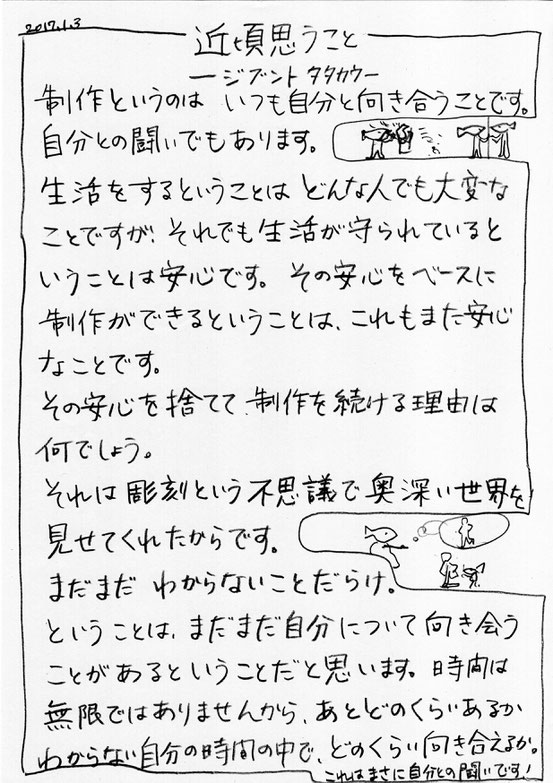 2017.1.3
近頃思うこと
ージブント タタカウー
制作というのは いつも自分と向き合うことです。
自分との闘いでもあります。
生活をするということは どんな人でも大変な
ことですが、それでも生活が守られていると
いうことは安心です。その安心をベースに
制作ができるということは、これもまた安心
なことです。
その安心を捨てて、制作を続ける理由は
何でしょう。
それは彫刻という不思議で奥深い世界を
見せてくれたからです。
まだまだ わからないことだらけ。
ということは、まだまだ自分について向き会う
ことがあるということだと思います。時間は
無限ではありませんから、あとどのくらいあるか
わからない自分の時間の中で、どのくらい向き合えるか。
これはまさに自分との闘いです！